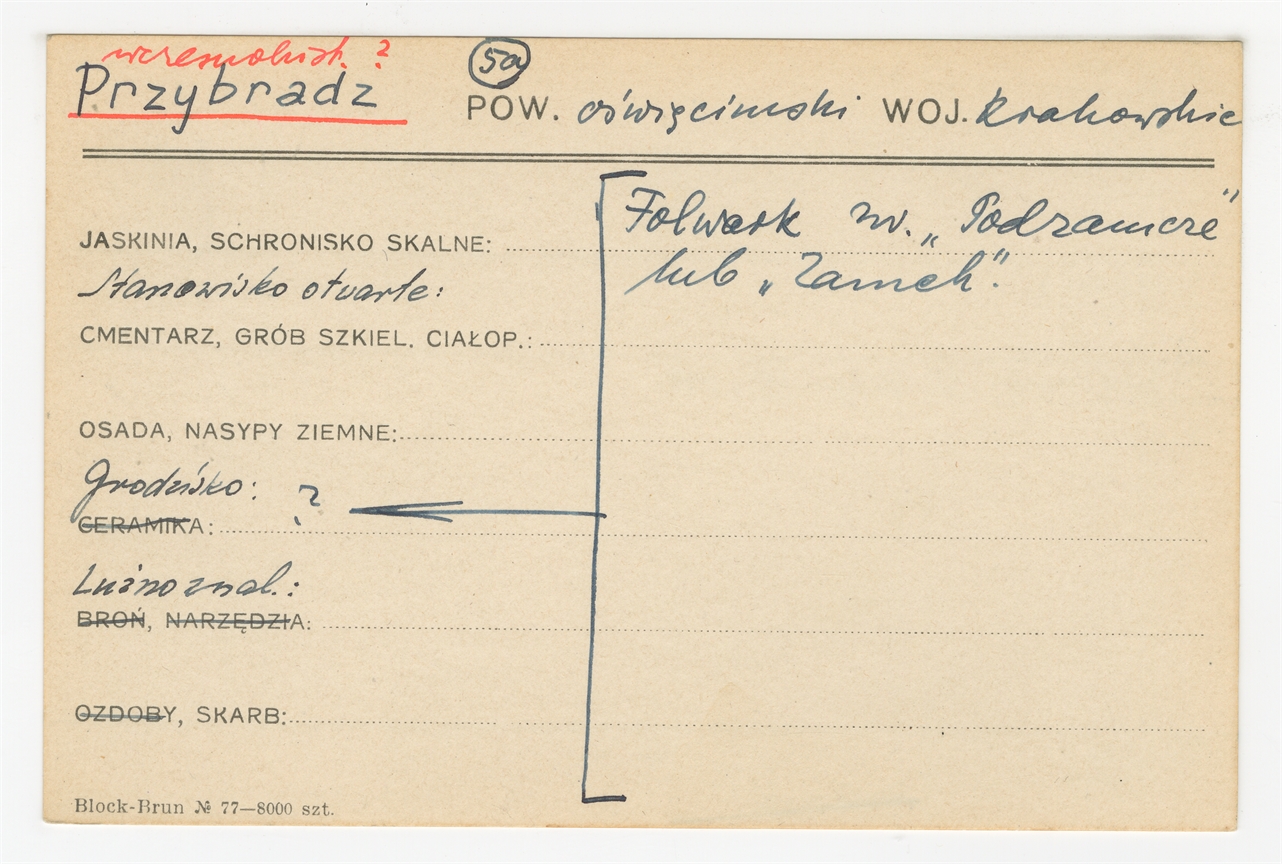 wczesnohist. ?
Przybradz
5a
POW. oświęcimski WOJ. Krakowskie
Folwark zw. „Podzamcze"
JASKINIA, SCHRONISKO SKALNE:
lub „Zamek".
Stanowisko otwarte:
CMENTARZ, GRÓB SZKIEL. CIAŁOP.:
OSADA, NASYPY ZIEMNE:
Grodzisko: ?
CERAMIKA:
Luźno znal.:
BROŃ, NARZĘDZIA:
OZDOBY, SKARB:
Block-Brun № 77—8000 szt.